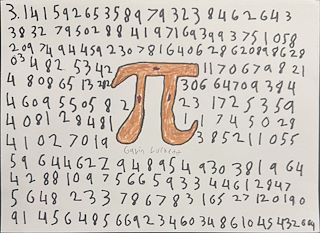 3.14159265358979323846264 3
3832 795028841971693993751058
209749445923078164062862089 8628
03 4825342 1170679821
4 80865132 82 306 6470938 4
4609550582 23 1725359
4 0812848 1 11 745028
4 102 7019 385211055
59 6446229 48954 930381 9 64
4 288109 7566 5933 4461 2847
5 648 233 786783 165 27 120190
91 45648566923460348610454326 64